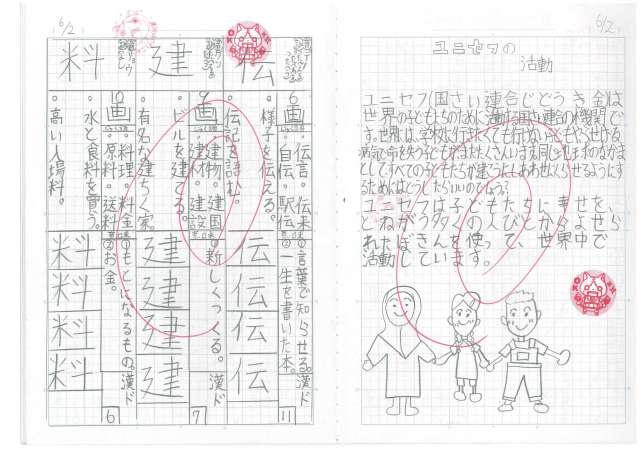 6/2
伝
6画
・伝言・伝来
・自伝・駅伝
②言葉で知らせる。
①一生を書いた本。
・様子を伝える。
・伝記を読む。
漢ド
11
伝
伝
伝
伝
建
9画
・建物・建国
・建材・建設
①新しくつくる。
・ビルを建てる。
・有名な建ちく家。
漢ド
7
建
建
建
建
料
10画
・料理・料金
・原料・送料
①もとになるもの。
②お金。
・水と食料を買う。
・高い入場料。
漢ド
6
料
料
料
料
6/2
ユニセフの
活動
ユニセフ(国さい連合じどうき金)は
世界の子どもたちのために活動する国さい連合の機関で
す。世界には、学校に行きたくても行けない子どもや
としてすべての子どもたちが
するためにはどうしたらいいのだろう?
ユニセフは子どもたちに幸せを、
とねがう多くの人びとからよせら
れたぼきんを使って、世界中で
活動しています。